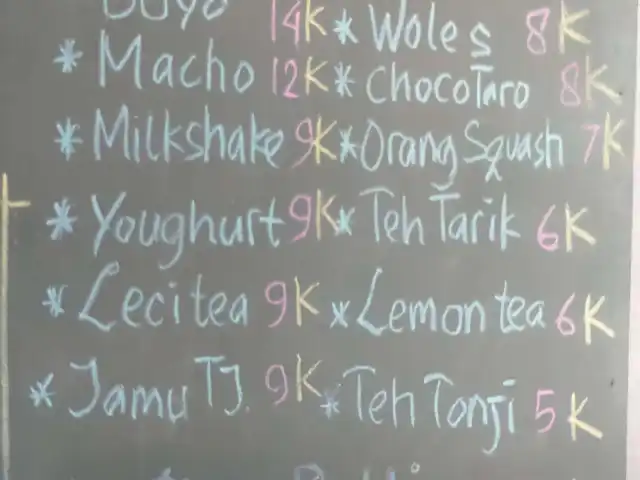 14K * Woles 8K
* Macho 12K * ChocoTaro 8K
* Milkshake 9K * Orang Squash 7K
* Youghurt 9K * Teh Tarik 6K
* Leci tea 9K * Lemon tea 6K
* Jamu TJ. 9K * Teh Tonji 5K